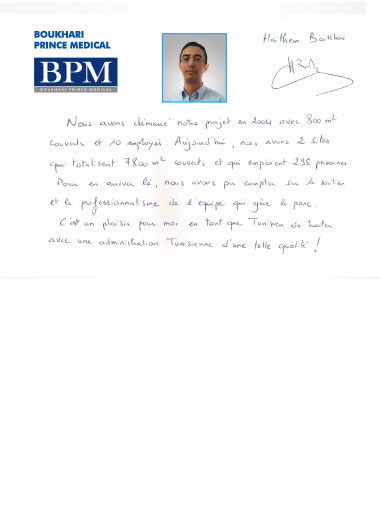 BOUKHARI
PRINCE MEDICAL
BPM
BOUKHARI PRINCE MEDICAL
Haithem Boukhari
Nous avons démarré notre projet en 2004 avec 800 m²
couverts et 10 employés. Aujourd'hui, nous avons 2 sites
qui totalisent 7800 m² couverts et qui emploient 295 personnes
Pour en arriver là, nous avons pu compter sur le soutien
et le professionnalisme de l'équipe qui gère le parc.
C'est un plaisir pour moi en tant que Tunisien de traiter
avec une administration Tunisienne d'une telle qualité !